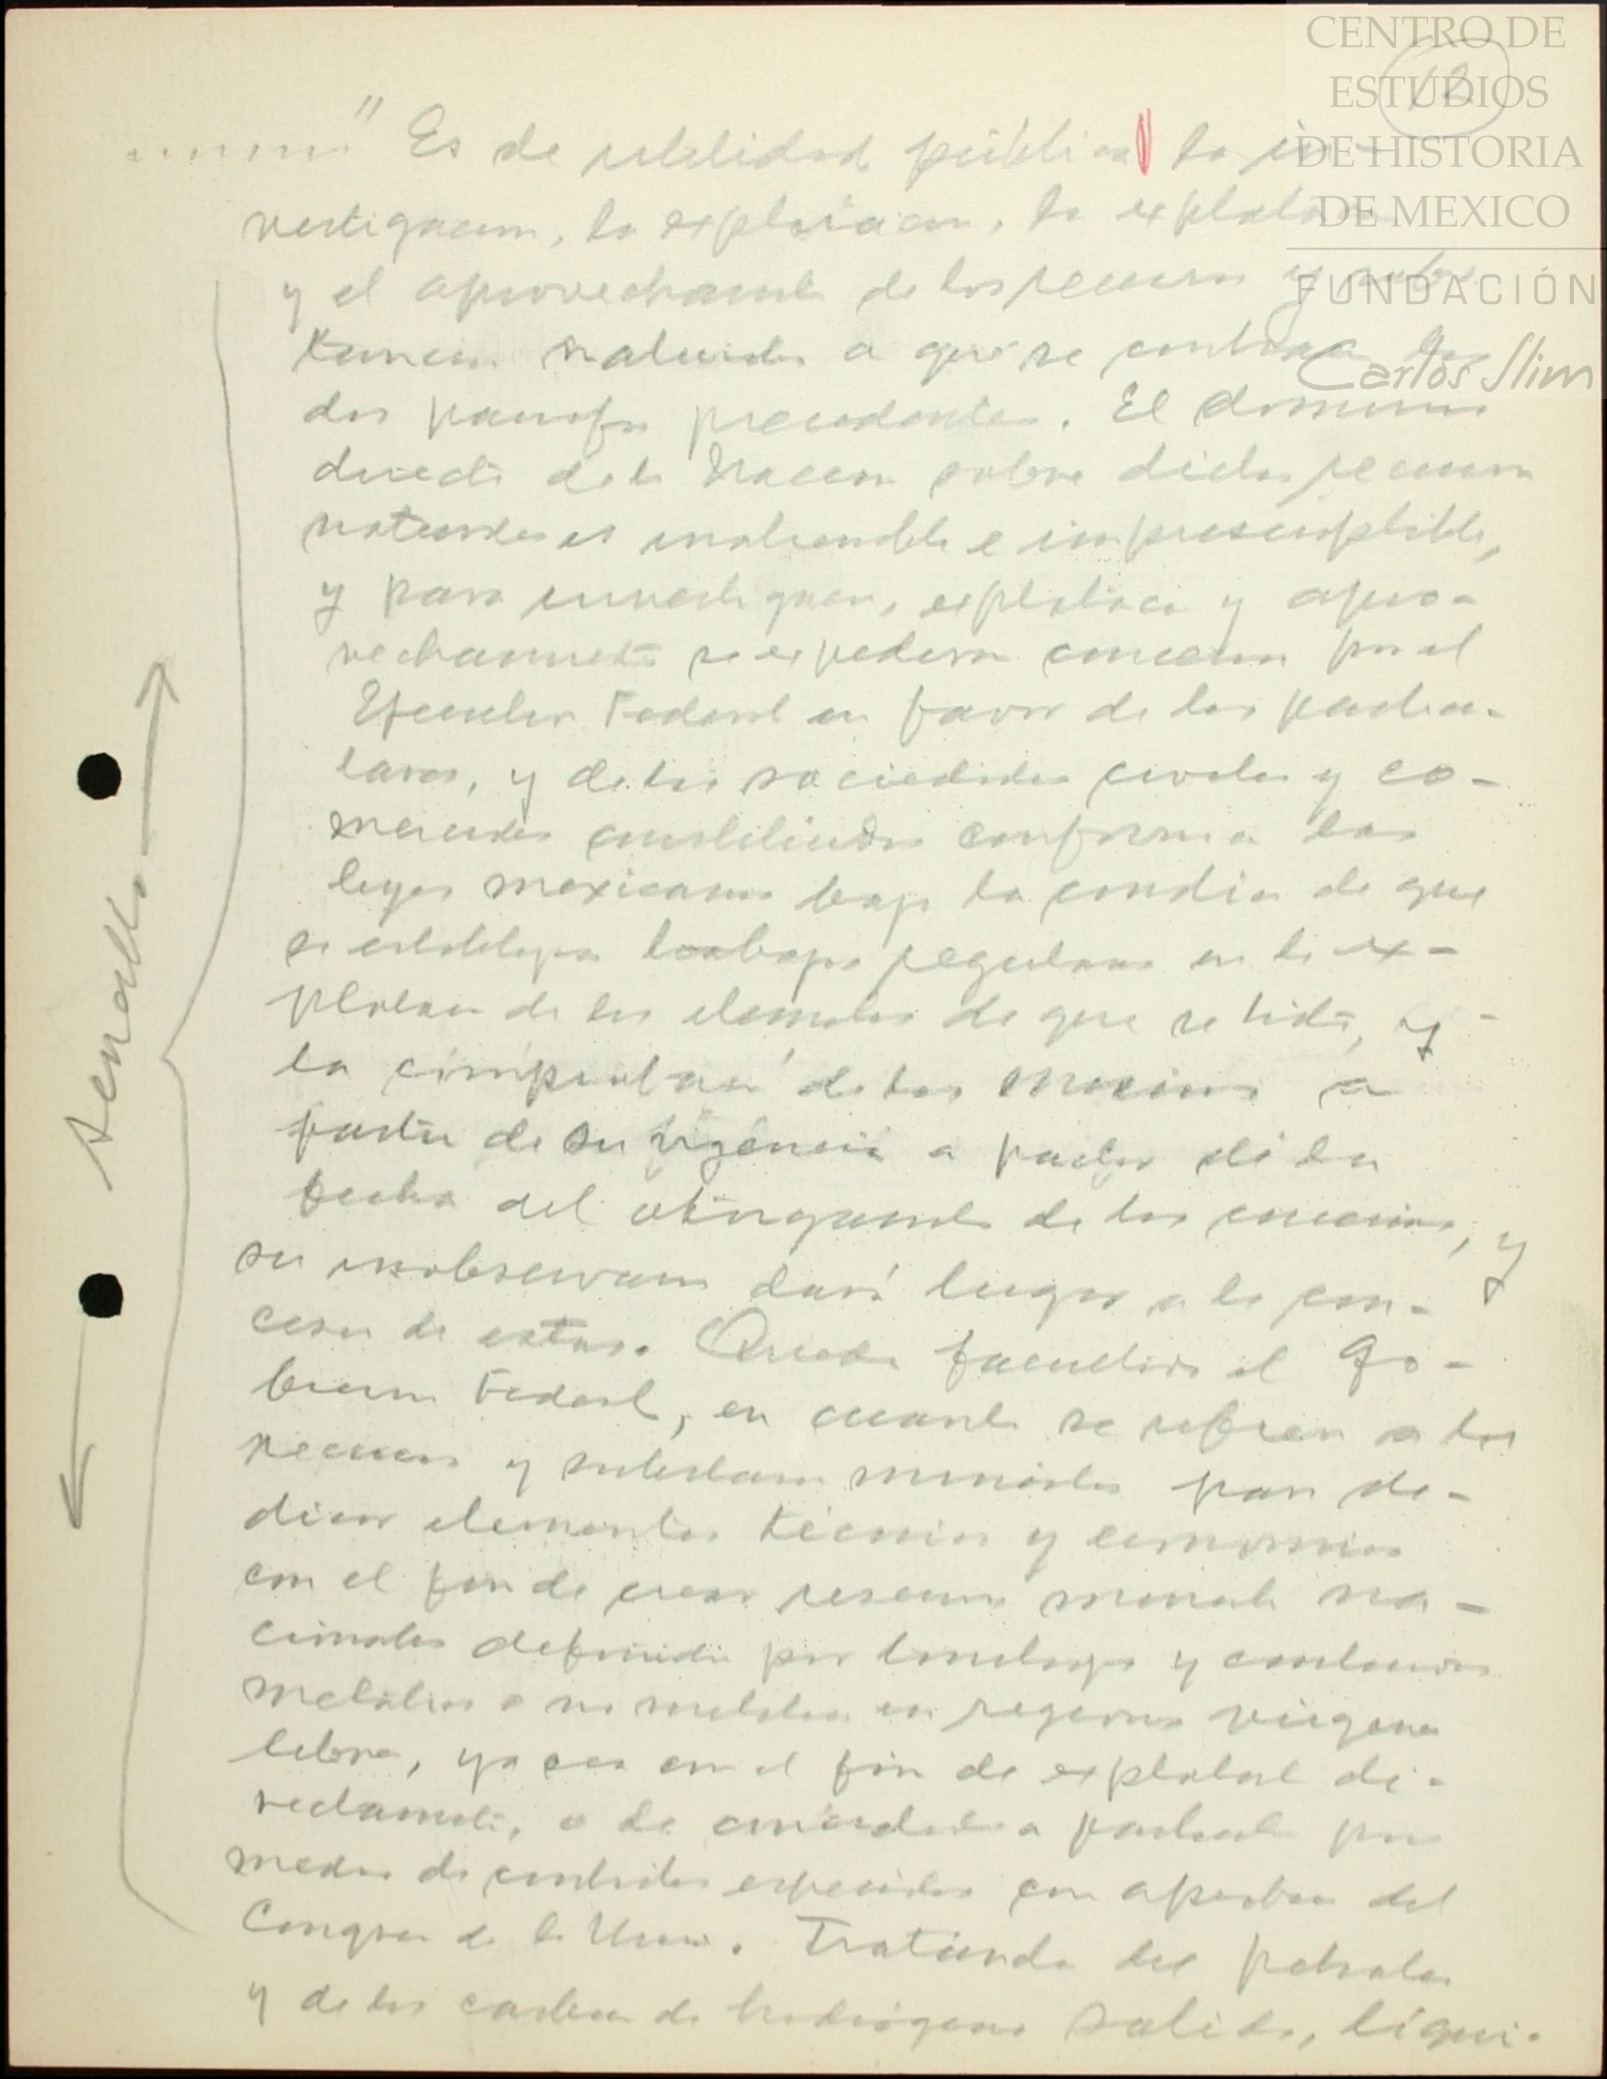 CENTRO DE
ESTUDIOS
DE HISTORIA
DE MEXICO
FUNDACIÓN
Carlos Slim
12
" Es de utilidad pública la in-
vestigacion, la exploracion, la explotacion
y el aprovechamiento de los recursos y subs-
tancias naturales a que se contraen los
dos parrafos precedentes. El dominio
directo de la Nacion sobre dichos recursos
naturales es inalienable e imprescriptible,
y para investigacion, explotacion y apro-
vechamiento se expediran concesiones por el
Ejecutivo Federal en favor de los particu-
lares, y de las sociedades civiles y co-
merciales constituidas conforme a las
leyes mexicanas bajo la condicion de que
se establezcan trabajos regulares en la ex-
plotacion de los elementos de que se trata, y
la comprobacion de los mismos a
partir de su vigencia a partir de la
fecha del otorgamiento de las concesiones, y
su inobservancia dará lugar a la
de estas. Queda facultado el Go-
bierno Federal, en cuanto se refieren a los
recursos y substancias minerales para de-
dicar elementos técnicos y economicos
con el fin de crear reservas minerales na-
cionales definidas por y
metalicos o no metalicos en regiones virgenes
libres, ya sea con el fin de explotarlas di-
rectamente, o de concederlas a particulares por
medio de contratos especiales con aprobacion del
Congreso de la Union. Tratandose del petroleo
y de los carburos de hidrógeno solidos, líqui-
sencillo